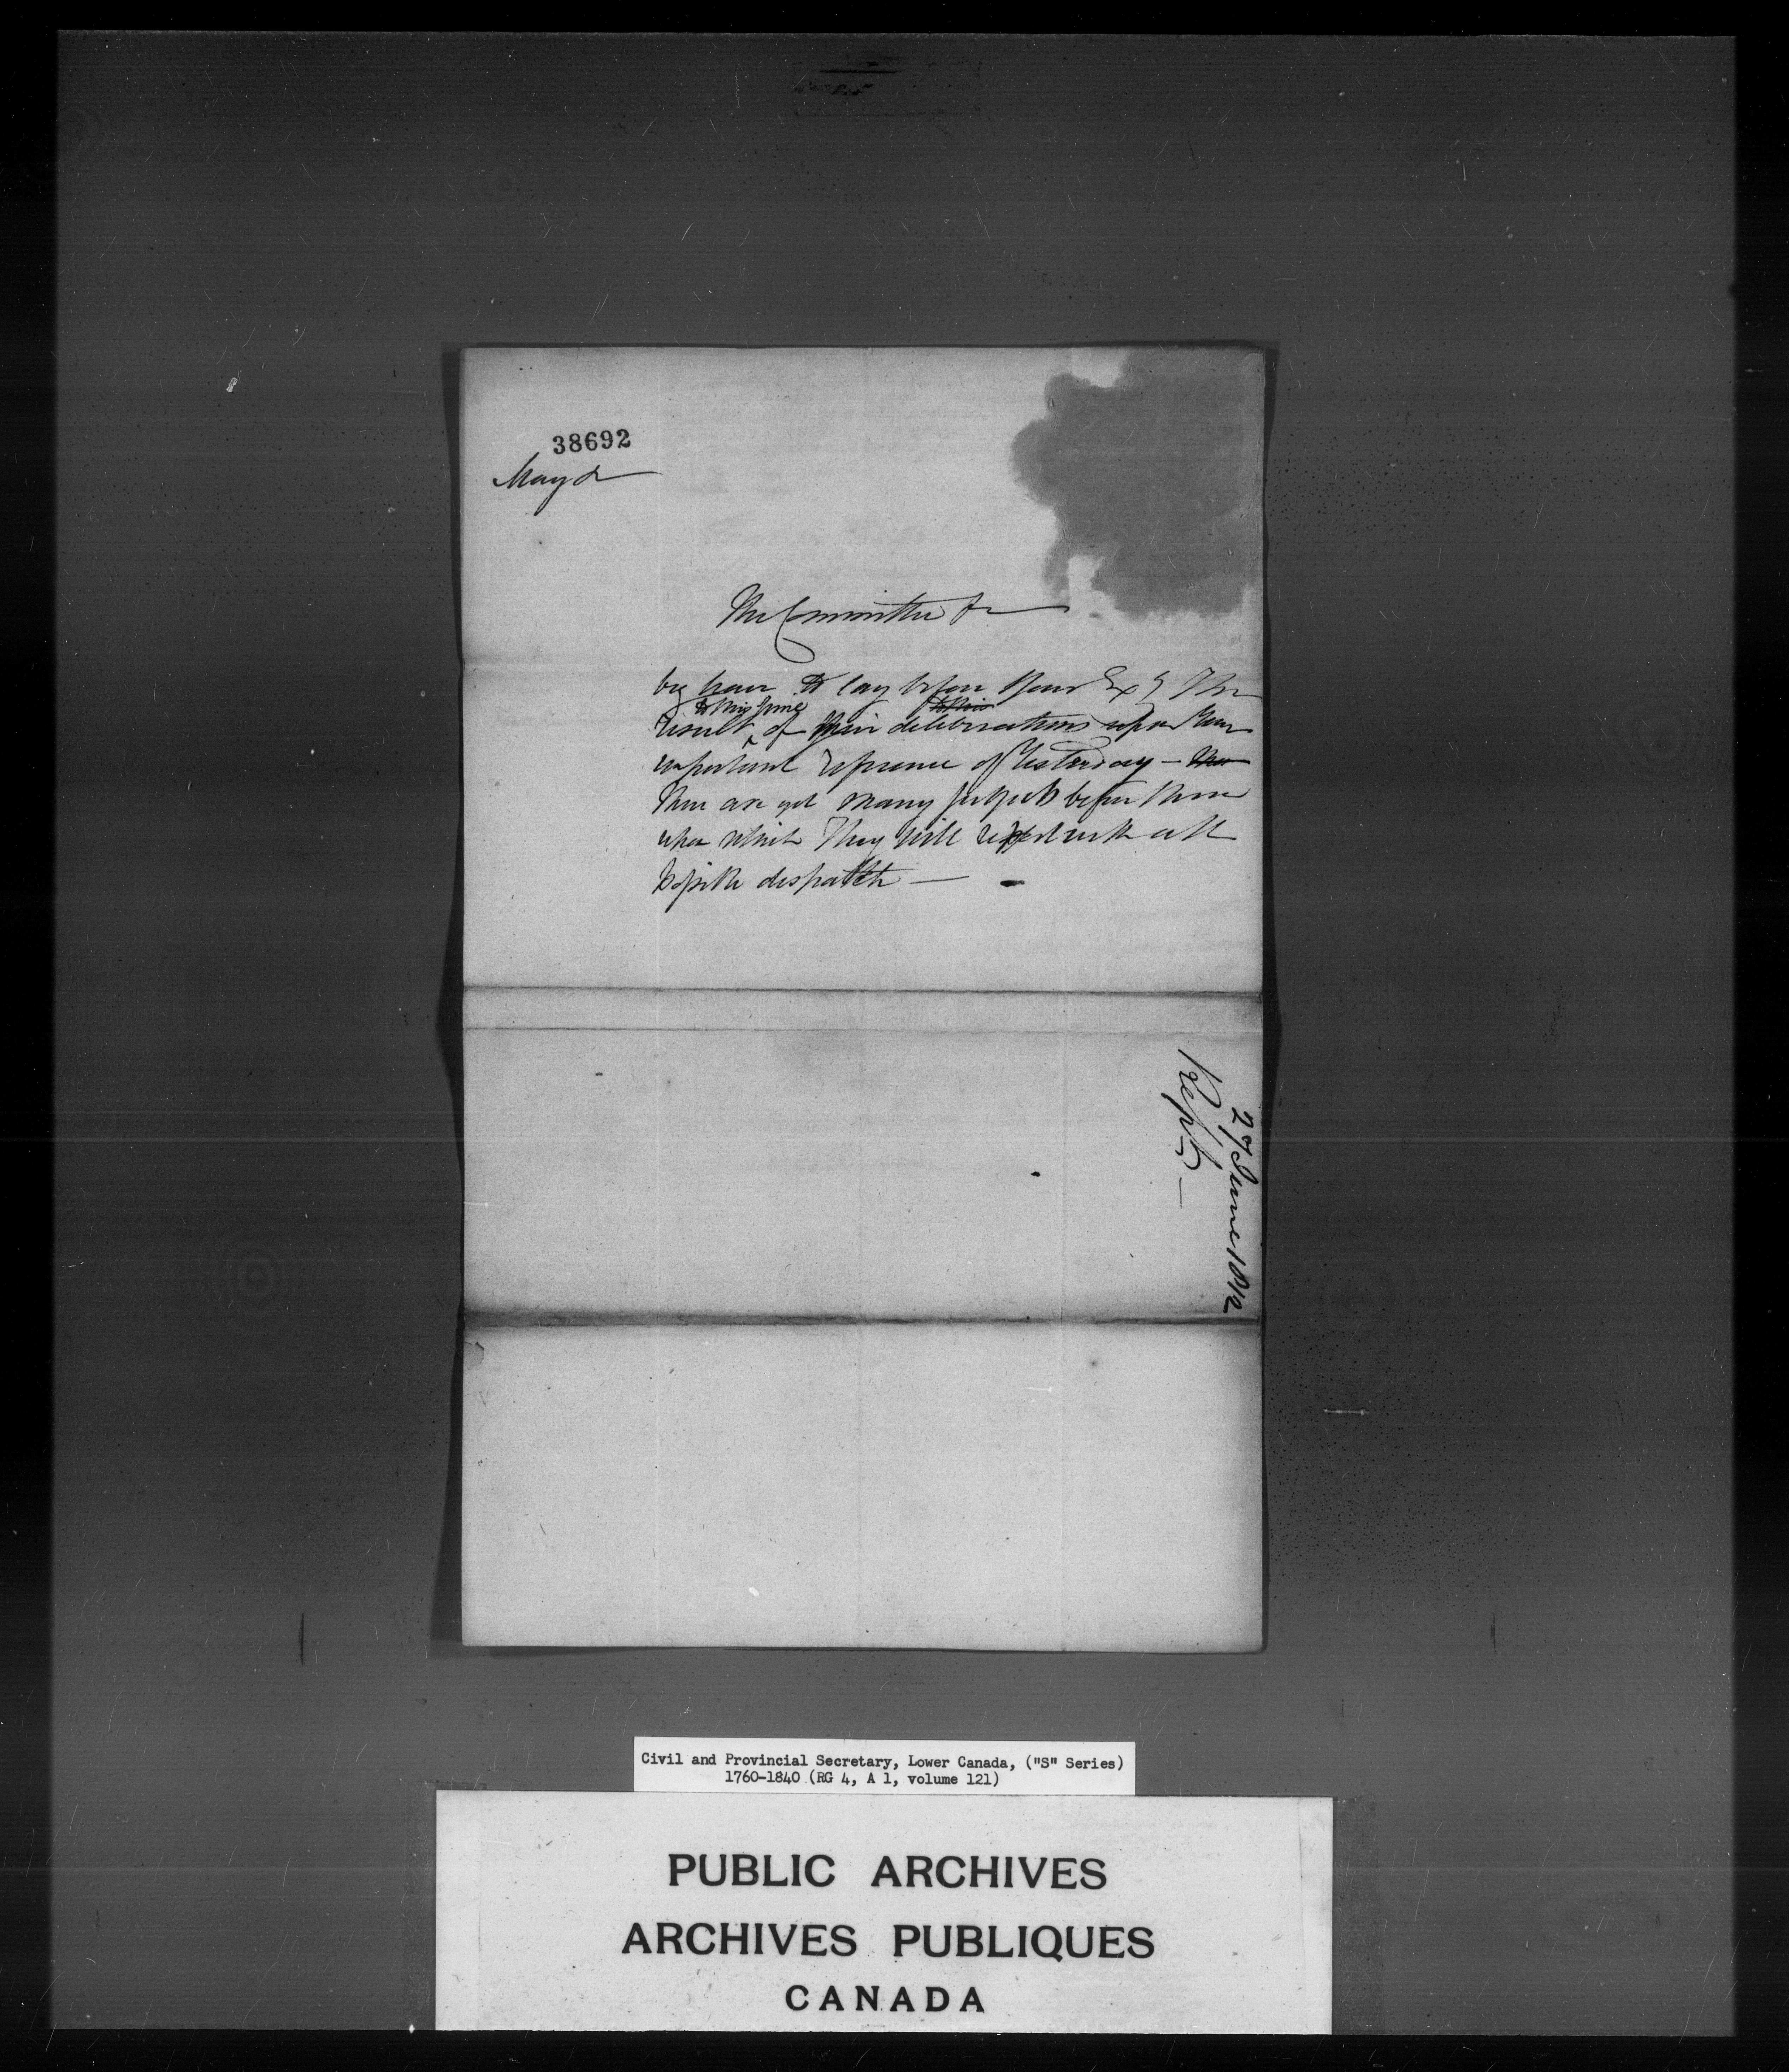 38692
May &
The Committee &
beg leave to lay before Your Exy The
to this time to this
result of their deliberations upon Your
important reference of Yesterday – There
There are yet many subjects before them
upon which They will report with all
possible dispatch —
27 June 1812
Report —
Civil and Provincial Secretary, Lower Canada, ("S" Series)
1760-1840 (RG 4, A 1, volume 121)
PUBLIC ARCHIVES
ARCHIVES PUBLIQUES
CANADA